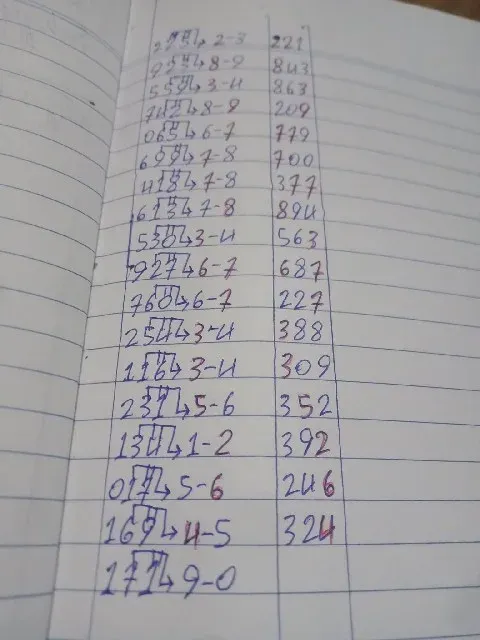 225 → 2-3 221
923 → 8-9 843
559 → 3-4 863
742 → 8-9 209
065 → 6-7 779
699 → 7-8 700
418 → 7-8 377
613 → 7-8 894
530 → 3-4 563
927 → 6-7 687
760 → 6-7 227
254 → 3-4 388
116 → 3-4 309
231 → 5-6 352
134 → 1-2 392
017 → 5-6 246
169 → 4-5 324
171 → 9-0